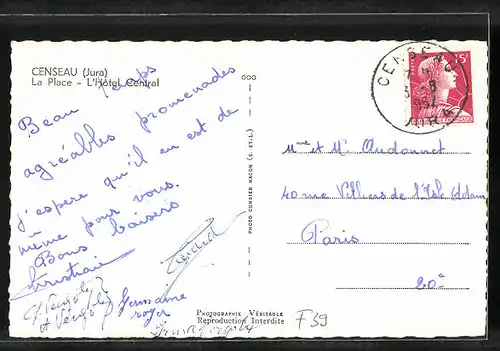 CENSEAU (Jura)
La Place - L'Hôtel Central
Beau temps
agréables promenades
j'espère qu'il en est de
même pour vous.
Bons baisers
Christian
Gérard
Germaine
roger
PHOTO COMBIER MACON (S. ET-L.)
Photographie Véritable
Reproduction Interdite
CENSEAU
JURA
15F
Mme et Mr Audonnet
40 rue Villiers de l'Isle Adam
Paris
20e
F39